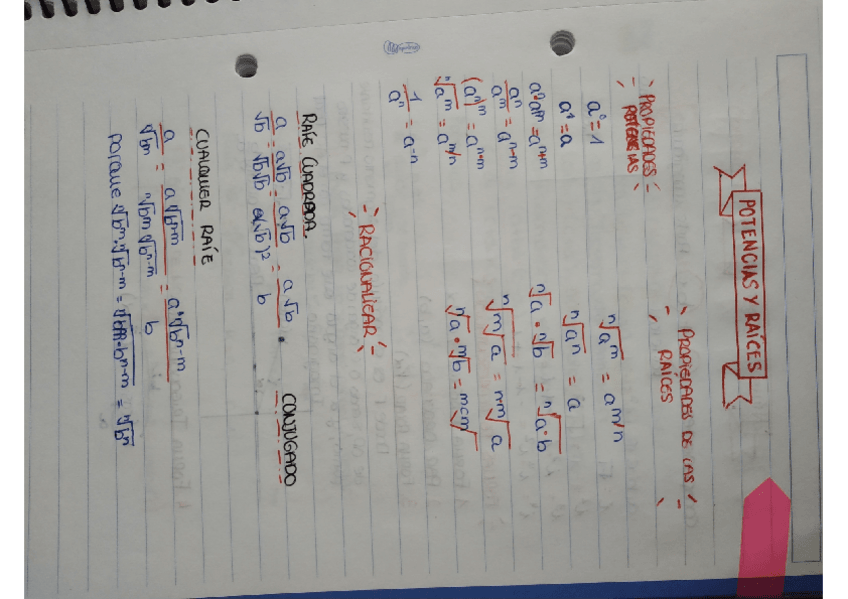 POTENCIAS Y RAÍCES
PROPIEDADES
POTENCIAS
a⁰ = 1
a¹ = a
aⁿ·aᵐ = aⁿ⁺ᵐ
aⁿ/aᵐ = aⁿ⁻ᵐ
(aⁿ)ᵐ = aⁿ·ᵐ
ⁿ√aᵐ = a^m/n
1/aⁿ = a⁻ⁿ
PROPIEDADES DE LAS
RAÍCES
ⁿ√aᵐ = a^m/n
ⁿ√aⁿ = a
ⁿ√a · ⁿ√b = ⁿ√a·b
ⁿ√ᵐ√a = ⁿ·ᵐ√a
RACIONALIZAR
RAÍZ CUADRADA.
a/√b = a√b/√b√b = a√b/(√b)² = a√b/b
CONJUGADO
CUALQUIER RAÍZ
a/ⁿ√bᵐ = a ⁿ√bⁿ⁻ᵐ/ⁿ√bᵐ ⁿ√bⁿ⁻ᵐ = a ⁿ√bⁿ⁻ᵐ/b
porque ⁿ√bᵐ · ⁿ√bⁿ⁻ᵐ = ⁿ√bᵐ·bⁿ⁻ᵐ = ⁿ√bⁿ